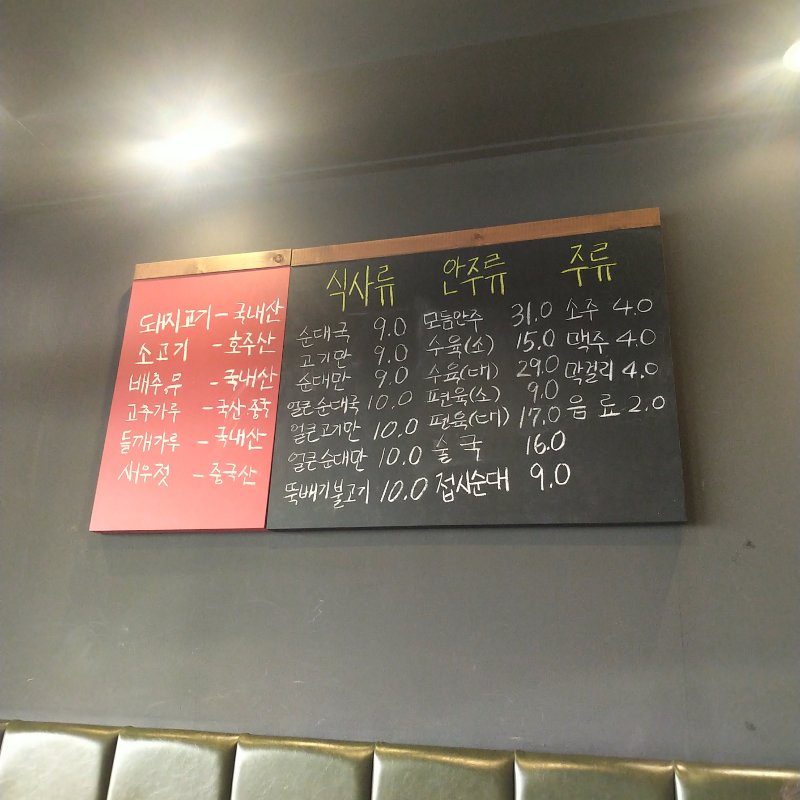 돼지고기 - 국내산
소고기 - 호주산
배추,무 - 국내산
고추가루 - 국산·중국
들깨가루 - 국내산
새우젓 - 중국산
식사류
순대국 9.0
고기만 9.0
순대만 9.0
얼큰순대국 10.0
얼큰고기만 10.0
얼큰순대만 10.0
뚝배기불고기 10.0
안주류
모듬안주 31.0
수육(소) 15.0
수육(대) 29.0
편육(소) 9.0
편육(대) 17.0
술국 16.0
접시순대 9.0
주류
소주 4.0
맥주 4.0
막걸리 4.0
음료 2.0